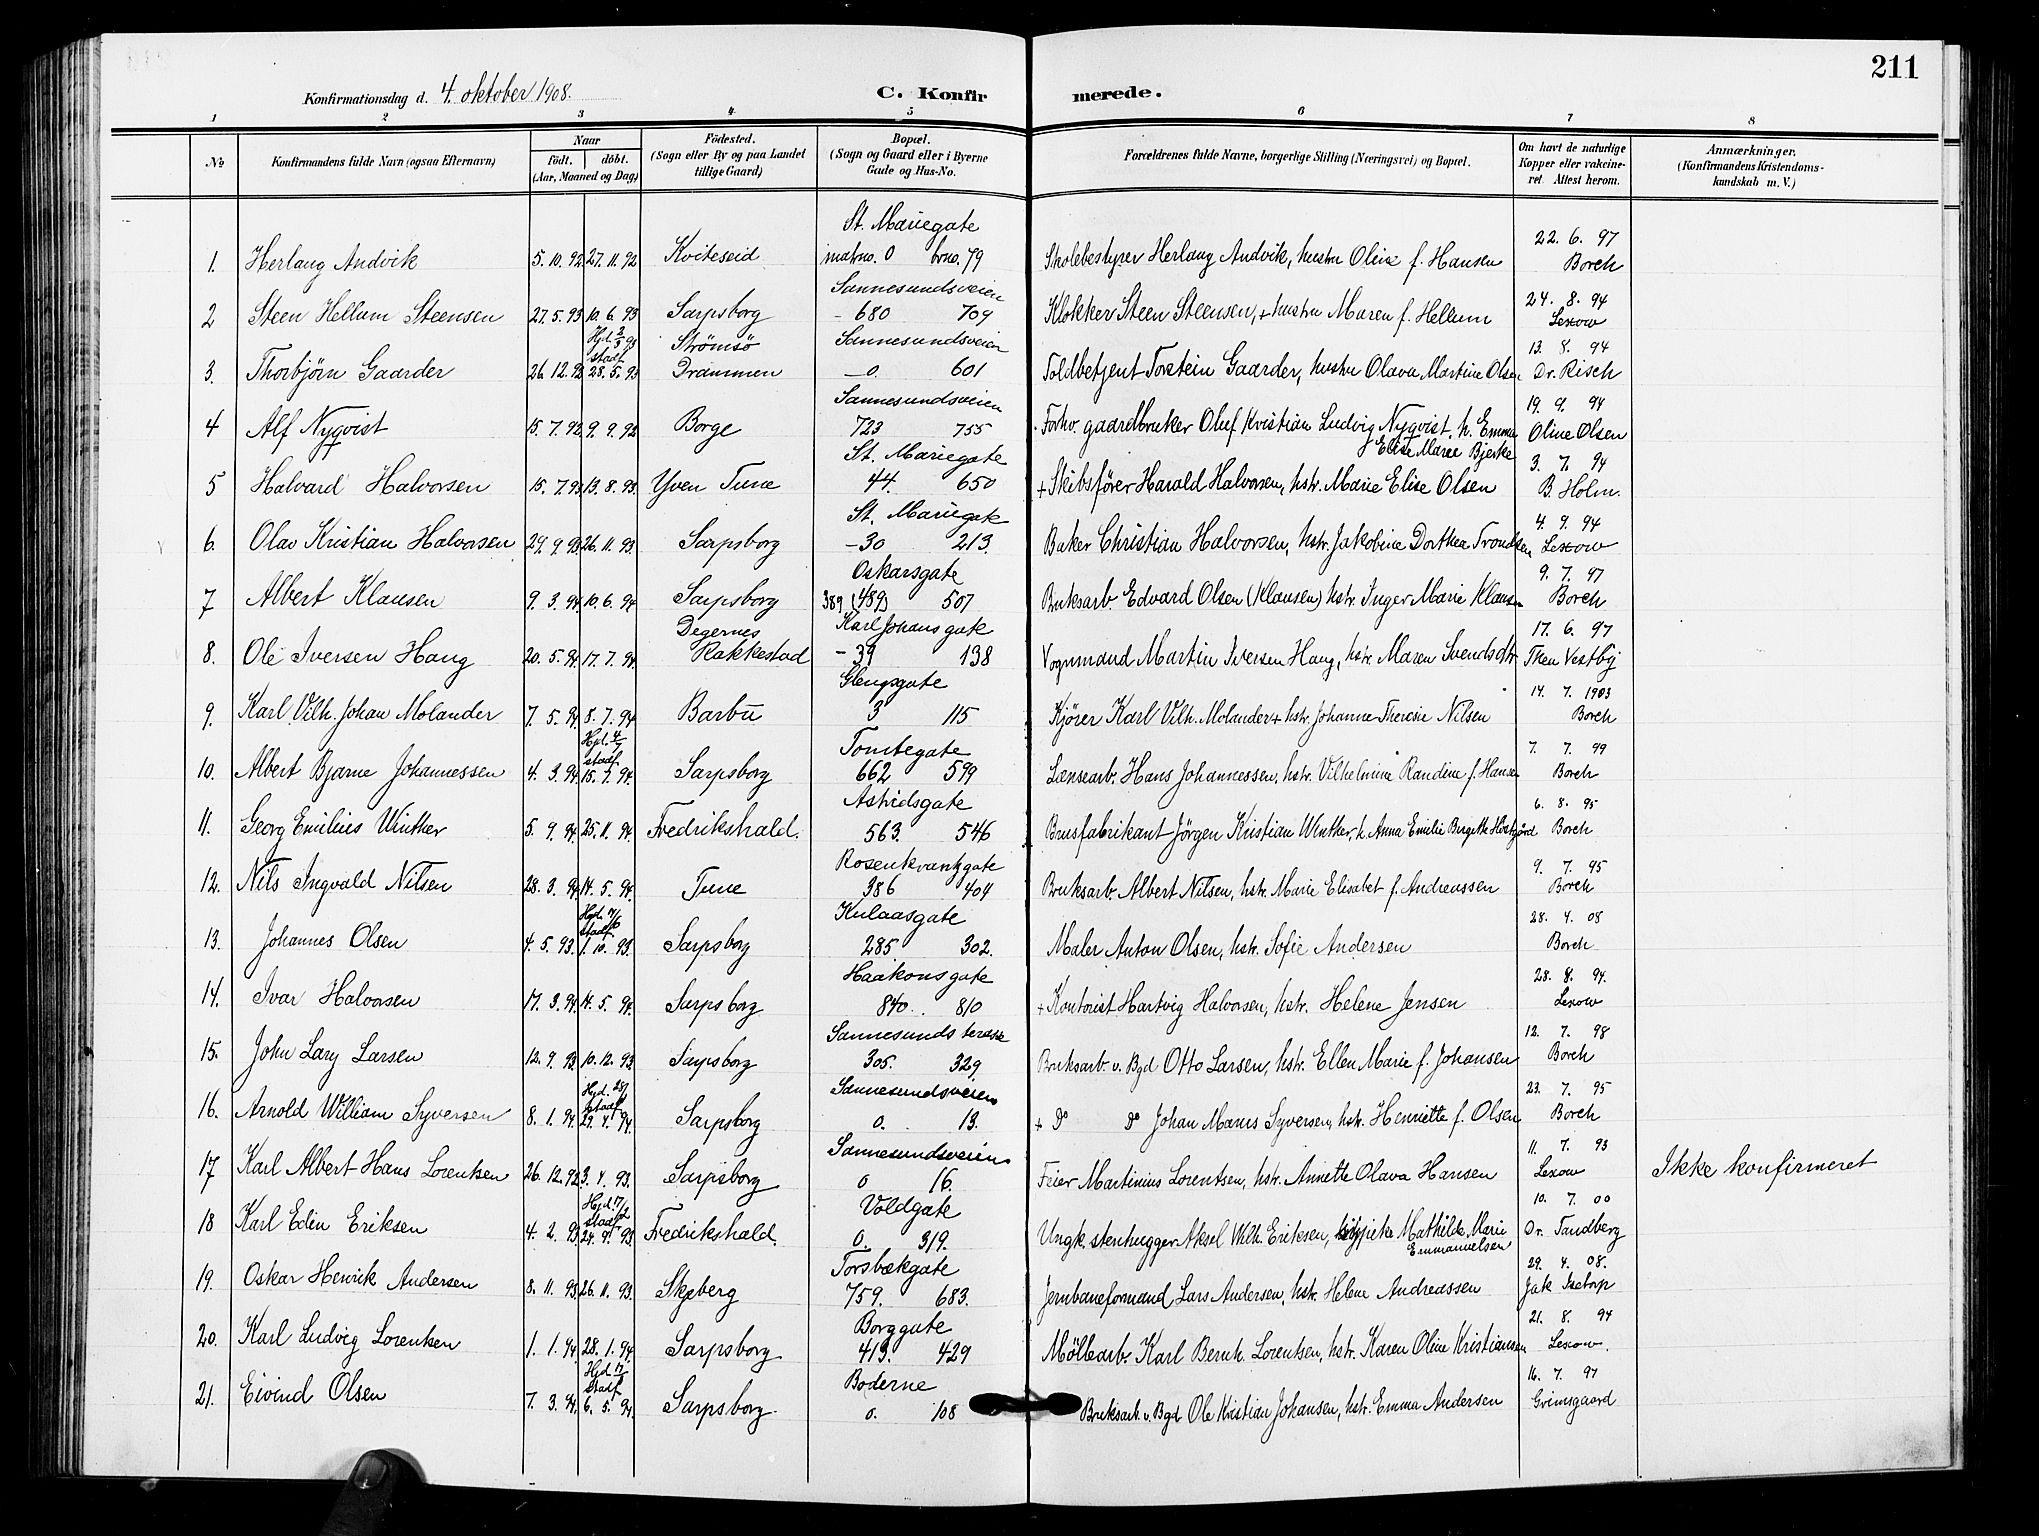 211
Konfirmationsdag d. 4. oktober 1908.
C. Konfirmerede.
1 2 3 4 5 6 7 8
No
Konfirmandens fulde Navn (ogsaa Efternavn)
Naar
födt. döbt.
(Aar, Maaned og Dag)
Födested.
(Sogn eller By og paa Landet
tillige Gaard)
Bopæl.
(Sogn og Gaard eller i Byerne
Gade og Hus-No.
Forældrenes fulde Navne, borgerlige Stilling (Næringsvei) og Bopæl.
Om havt de naturlige
Kopper eller vakcine-
ret. Attest herom.
Anmærkninger.
(Konfirmandens Kristendoms-
kundskab m. V.)
St. Mariegate 22. 6. 97
1. Herlaug Andvik 5. 10. 92. 27. 11. 92 Kviteseid matno. 0 brno. 79 Skolebestyrer Herlaug Andvik, hustru Olise f. Hansen Borch
Sannesundsveien 24. 8. 94
2 Steen Hellum Steensen 27. 5. 93 10. 6. 93 Sarpsborg - 680 709 Klokker Steen Steensen, + hustru Maren f. Hellum Lexow
Hjd. 2/3 93 stadf. Strömsö Sannesundsveien 13. 8. 94
3. Thorbjörn Gaarder 26. 12. 92 28. 5. 93 Drammen - 0. 601 Toldbetjent Torstein Gaarder, hustru Olava Martine Olsen Dr. Risch
Sannesundsveien 19. 9. 94
4 Alf Nyqvist 15. 7. 92. 9. 9. 92 Borge 723 755 Forhv. gaardbruker Oluf Kristian Ludvig Nyqvist, h. Emma Oline Olsen
Elise Marie Bjerke
St. Mariegate 3. 7. 94
5 Halvard Halvorsen 15. 7. 93. 13. 8. 93. Yven Tune 44. 650 + Skibsförer Harald Halvorsen, hstr. Marie Elise Olsen B. Holm.
St. Mariegate 4. 9. 94
6. Olav Kristian Halvorsen 29. 9 93. 26. 11. 93 Sarpsborg - 30 213. Baker Christian Halvorsen, hstr. Jakobine Dorthea Trondsen Lexow
Oskarsgate 9. 7. 97
7 Albert Klausen 9. 3. 94. 10. 6. 94 Sarpsborg 389 (489) 507 Bruksarb. Edvard Olsen (Klausen) hstr. Inger Marie Klausen Borch
Degernes Karl Johans gate 17. 6. 97
8. Ole Iversen Haug 20. 5. 94. 17. 7. 94. Rakkestad - 39 138 Vognmand Martin Iversen Haug, hstr. Maren Svendsdtr. Then Vestby
Glengsgate 14. 7. 1903
9. Karl Vilh. Johan Molander 7. 5. 94. 8. 7. 94 Barbu 3 115 Kjörer Karl Vilh. Molander + hstr. Johanne Therese Nilsen Borch
Hjd. 4/7 stadf. Tomtegate 7. 7. 99
10. Albert Bjarne Johannessen 4. 3. 94. 15. 7. 94. Sarpsborg 662 599 Lænsearb. Hans Johannessen, hstr. Vilhelmine Randine f. Hansen Borch
Astridsgate 6. 8. 95
11. Georg Emilius Winther 5. 9. 94. 25. 11. 94 Fredrikshald. 563. 546 Brusfabrikant Jörgen Kristian Winther, h. Anna Emilie Birgitte Borch
Rosenkrantzgate 9. 7. 95
12. Nils Ingvald Nilsen 28. 3. 94. 14. 5. 94. Tune 386 404 Bruksarb. Albert Nilsen, hstr. Marie Elisabet f. Andreassen Borch
Hjd. stadf. Kulaasgate 28. 4. 08
13. Johannes Olsen 4. 5. 93. 1. 10. 93. Sarpsborg 285 302. Maler Anton Olsen, hstr. Sofie Andersen Borch
Haakonsgate 28. 8. 94.
14. Ivar Halvorsen 17. 3. 94. 14. 5. 94. Sarpsborg 840. 810 + Kontorist Hartvig Halvorsen, hstr. Helene Jensen Lexow
Sannesunds terasse 12. 7. 98
15. John Lary Larsen 12. 9. 93. 10. 12. 93. Sarpsborg 305. 329. Bruksarb. v. Bgd Otto Larsen, hstr. Ellen Marie f. Johansen Borch
Hjd. stadf. Sannesundsveien 23. 7. 95
16. Arnold William Syversen 8. 1. 94. 29. 4. 94. Sarpsborg 0. 13. + Do Do Johan Manus Syversen, hstr. Henriette f. Olsen Borch
Sannesundsveien 11. 7. 93
17 Karl Albert Hans Lorentsen 26. 12. 92. 3. 4. 93. Sarpsborg 0 16. Feier Martinius Lorentsen, hstr. Annette Olava Hansen Lexow Ikke konfirmeret
Hjd. stadf. Voldgate 10. 7. 00
18 Karl Edin Eriksen 4. 2. 93. 24. 9. 93. Fredrikshald. 0. 319. Ungk. stenhugger Aksel Vilh. Eriksen, pike Mathilde Marie Dr. Tandberg
Emmanuelsen
Torsbækgate 29. 4. 08.
19. Oskar Henrik Andersen 8. 11. 93. 26. 11. 93. Skjeberg 759. 683. Jernbaneformand Lars Andersen, hstr. Helene Andreassen Jak
Borggate 21. 8. 94
20. Karl Ludvig Lorentsen 1. 1. 94. 28. 1. 94. Sarpsborg 413. 429 Möllearb. Karl Bernh. Lorentsen, hstr. Karen Oline Kristiansen Lexow.
Hjd. stadf. Boderne 16. 7. 97
21. Eivind Olsen 7. 3. 94. 6. 5. 94. Sarpsborg. 0. 108 Bruksarb. v. Bgd Ole Kristian Johansen, hstr. Emma Andersen Grimsgaard